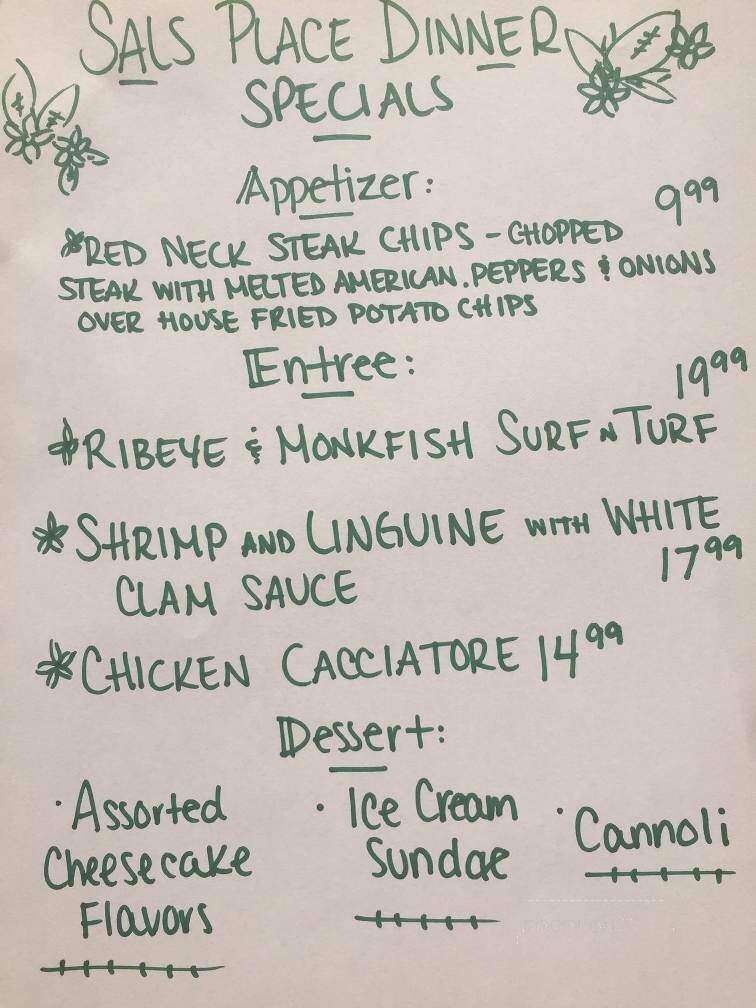 SALS PLACE DINNER
SPECIALS
Appetizer:
9.99
*RED NECK STEAK CHIPS - CHOPPED
STEAK WITH MELTED AMERICAN, PEPPERS & ONIONS
OVER HOUSE FRIED POTATO CHIPS
Entree:
19.99
*RIBEYE & MONKFISH SURF N TURF
*SHRIMP AND LINGUINE WITH WHITE
CLAM SAUCE 17.99
*CHICKEN CACCIATORE 14.99
Dessert:
· Assorted
Cheesecake
Flavors
· Ice Cream
Sundae
· Cannoli